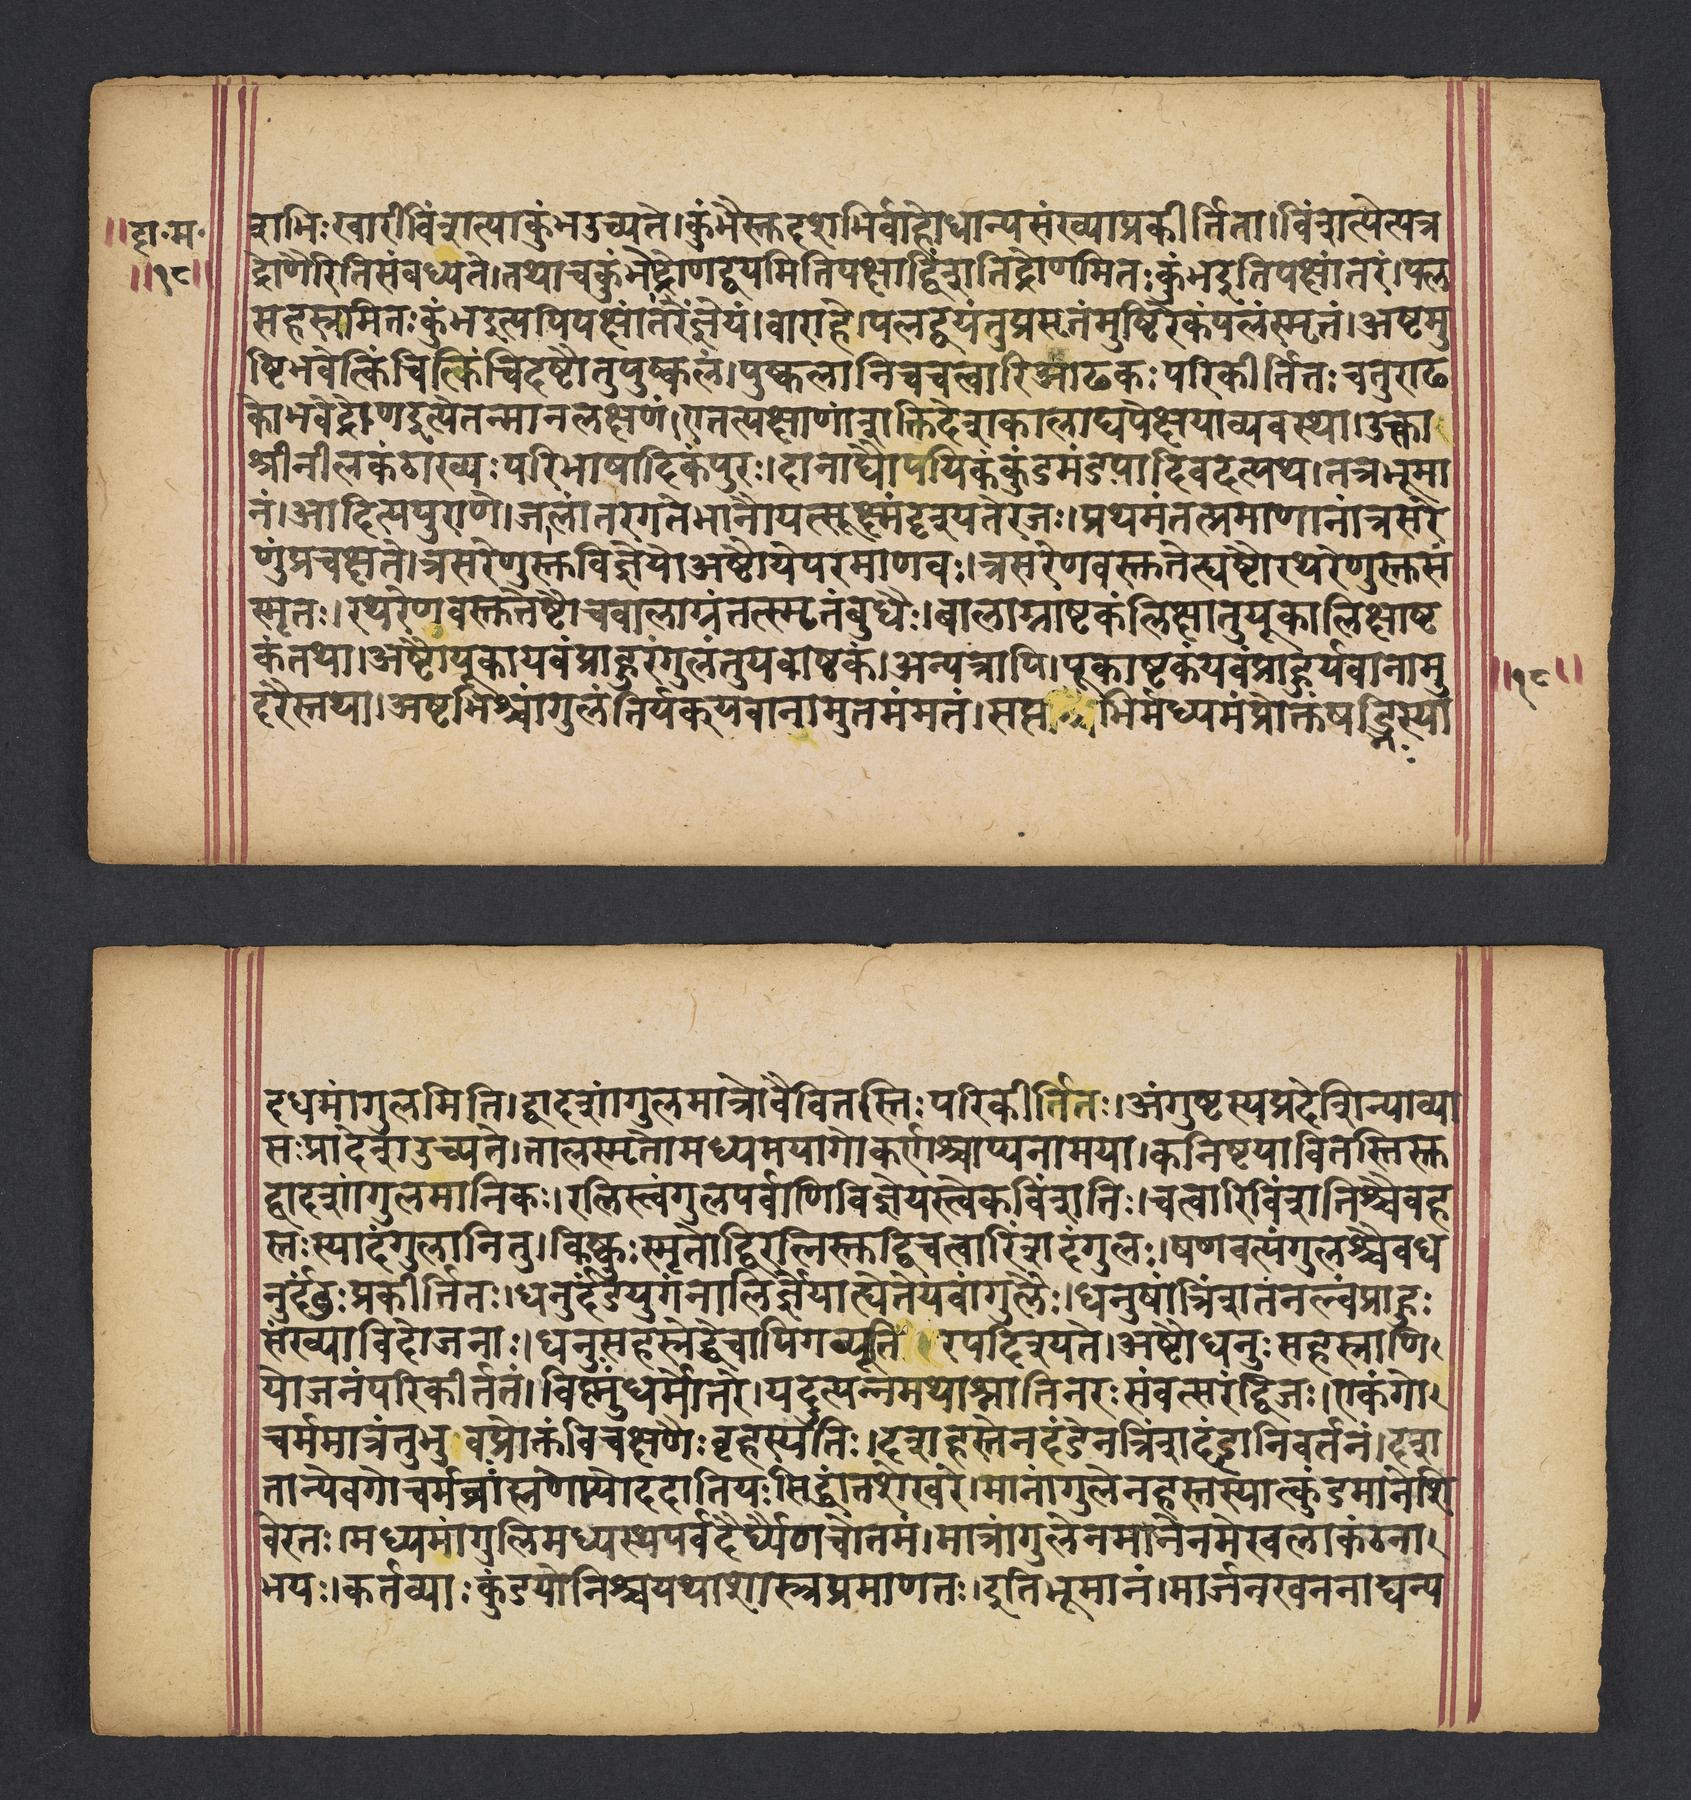 ॥दा॰म॰
॥१८॥
शभिःखारीविंशत्याकुंभउच्यते।कुंभैस्तदशभिर्वाहोधान्यसंख्याप्रकीर्तिता।विंशत्येत्यत्र
द्रोणैरितिसंबध्यते।तथाचकुंभोद्रोणद्वयमितिपक्षाद्विंशतिद्रोणमितःकुंभइतिपक्षांतरं।पल
सहस्रमितःकुंभइत्यपिपक्षांतरंज्ञेयं।वाराहे।पलद्वयंतुप्रसृतंमुष्टिरेकंपलंस्मृतं।अष्टमु
ष्टिभवेत्किंचित्किंचिदष्टौतुपुष्कलं।पुष्कलानिचचत्वारिआढकःपरिकीर्तितःचतुराढ
कोभवेद्रोणइत्येतन्मानलक्षणं।एतत्पक्षाणांशक्तिदेशकालाद्यपेक्षयाव्यवस्था।उक्त्वा
श्रीनीलकंठाख्यःपरिभाषादिकंपुरः।दानाद्यौपयिकंकुंडमंडपादिवदत्यथ।तत्रभूमा
नं।आदित्यपुराणे।जलांतरगतेभानौयत्सूक्ष्मंदृश्यतेरजः।प्रथमंतत्प्रमाणानांत्रसरे
णुंप्रचक्षते।त्रसरेणुस्तविज्ञेयोअष्टौयेपरमाणवः।त्रसरेणवस्ततेत्द्यष्टौरथरेणुस्तसं
स्मृतः।रथरेणवस्ततेष्टौचवालाग्रंतत्स्मृतंबुधैः।वालाग्राष्टकंलिक्षातुयूकालिक्षाष्ट
कंतथा।अष्टौयूकायवंप्राहुरंगुलंतुयवाष्टकं।अन्यत्रापि।यूकाष्टकंयवंप्राहुर्यवानामु
दरैस्तथा।अष्टभिश्चांगुलंतिर्यक्यवानामुतमंमतं।सप्तभिर्मध्यमंप्रोक्तंषड्भिःस्या
॥१८॥
दधमांगुलमिति।द्वादशांगुलमात्रोवैवितस्तिःपरिकीर्तितः।अंगुष्टस्यप्रदेशिन्याव्या
सःप्रादेशउच्यते।तालस्मृतोमध्यमयागोकर्णश्चाप्यनामया।कनिष्टयावितस्तिस्त
द्वादशांगुलमानिकः।रत्निस्त्वंगुलपर्वाणिविज्ञेयस्त्वेकविंशतिः।चत्वारिविंशतिश्चैवह
स्तःस्यादंगुलानितु।किष्कुःस्मृतोद्विरत्निस्तद्विचत्वारिंशदंगुलः।षणवत्यंगुलश्चैवध
नुर्दंडःप्रकीर्तितः।धनुर्दंडयुगंनालिर्ज्ञेयात्द्येतेयवांगुलैः।धनुषांत्रिंशतंनल्वंप्राहुः
संख्याविदोजनाः।धनुसहस्रेद्वेचापिगव्यूतिरुपदिश्यते।अष्टौधनुःसहस्राणि
योजनंपरिकीर्ततं।विष्णुधर्मोतरे।यदुत्पन्नमथाश्नातिनरःसंवत्सरंद्विजः।एकंगो
चर्ममात्रंतुभुवप्रोक्तंविचक्षणैःबृहस्पतिः।दशहस्तेनदंडेनत्रिंशदंडानिवर्तनं।दश
तान्येवगोचर्मब्राह्मणोयोददातियःसिद्धांतशेखरे।मानांगुलेनहस्तस्यात्कुंडमानेशि
वेरतः।मध्यमांगुलिमध्यस्थपर्वदैर्घ्येणचोतमं।मात्रांगुलेनमानेनमेखलाकंठना
भयः।कर्तव्याःकुंडयोनिश्चयथाशास्त्रप्रमाणतः।इतिभूमानं।मार्जनखननाद्यन्य